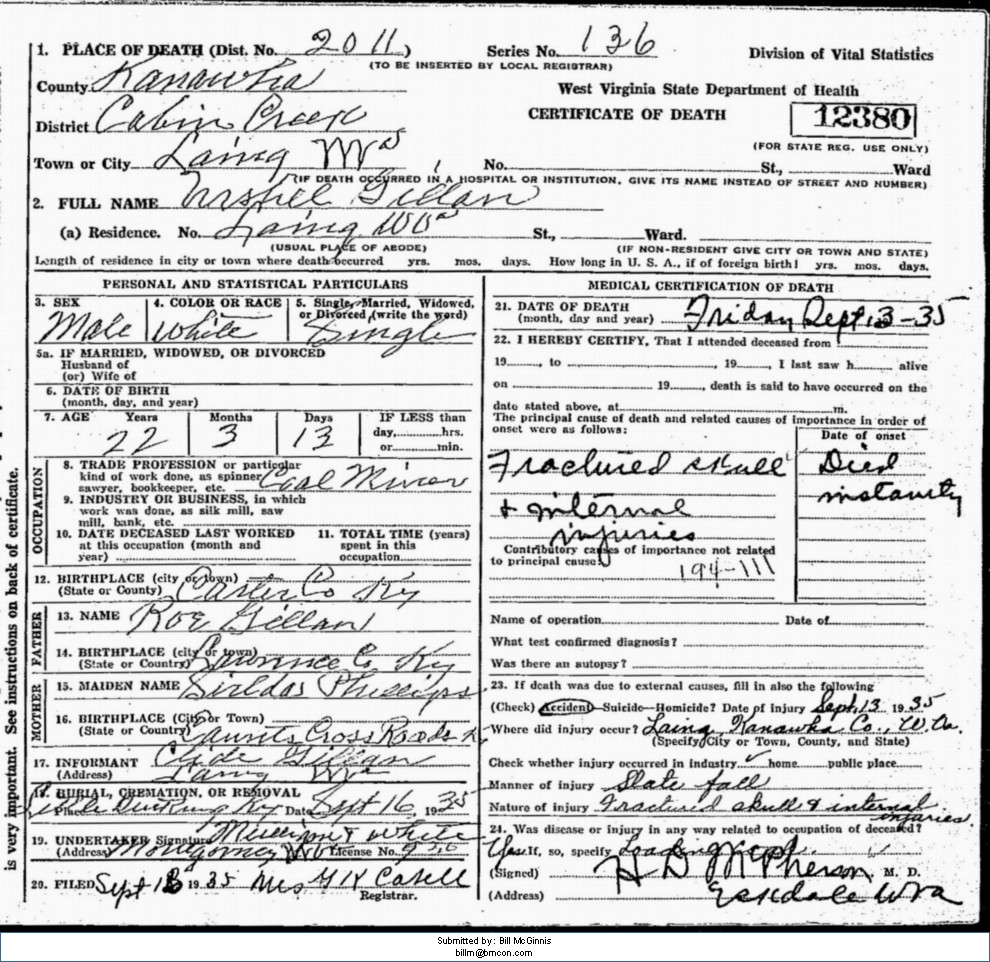 1. PLACE OF DEATH (Dist. No. 2011) Series No. 136 Division of Vital Statistics
(TO BE INSERTED BY LOCAL REGISTRAR)
County Kanawha West Virginia State Department of Health
District Cabin Creek CERTIFICATE OF DEATH 12380
(FOR STATE REG. USE ONLY)
Town or City Laing No. St., Ward
(IF DEATH OCCURRED IN A HOSPITAL OR INSTITUTION, GIVE ITS NAME INSTEAD OF STREET AND NUMBER)
2. FULL NAME Gillan
(a) Residence. No. Laing WVa St., Ward.
(USUAL PLACE OF ABODE) (IF NON-RESIDENT GIVE CITY OR TOWN AND STATE)
Length of residence in city or town where death occurred yrs. mos. days. How long in U. S. A., if of foreign birth? yrs. mos. days.
PERSONAL AND STATISTICAL PARTICULARS
3. SEX 4. COLOR OR RACE 5. Single, Married, Widowed,
or Divorced (write the word)
Male White Single
5a. IF MARRIED, WIDOWED, OR DIVORCED
Husband of
(or) Wife of
6. DATE OF BIRTH
(month, day, and year)
7. AGE Years Months Days IF LESS than
22 3 13 day, hrs.
or min.
OCCUPATION
8. TRADE PROFESSION or particular
kind of work done, as spinner Coal Miner
sawyer, bookkeeper, etc.
9. INDUSTRY OR BUSINESS, in which
work was done, as silk mill, saw
mill, bank, etc.
10. DATE DECEASED LAST WORKED 11. TOTAL TIME (years)
at this occupation (month and spent in this
year) occupation
12. BIRTHPLACE (city or town)
(State or County) Carter Co Ky
FATHER
13. NAME Roe Gillan
14. BIRTHPLACE (city or town)
(State or Country) Lawrence Co. Ky
MOTHER
15. MAIDEN NAME Phillips
16. BIRTHPLACE (City or Town)
(State or Country) Cross Roads
17. INFORMANT Clyde Gillan
(Address) Laing
18. BURIAL, CREMATION, OR REMOVAL
Place Ky Date Sept 16, 1935
19. UNDERTAKER Signature & White
(Address) Montgomery WVa License No.
20. FILED Sept 1935 Mrs
Registrar.
See instructions on back of certificate.
is very important.
MEDICAL CERTIFICATION OF DEATH
21. DATE OF DEATH
(month, day and year) Friday Sept 13-35
22. I HEREBY CERTIFY, That I attended deceased from
19, to, 19, I last saw h alive
on 19, death is said to have occurred on the
date stated above, at m.
The principal cause of death and related causes of importance in order of
onset were as follows: Date of onset
Fractured skull Died
& internal instantly
injuries
Contributory causes of importance not related
to principal cause: 194-111
Name of operation Date of
What test confirmed diagnosis?
Was there an autopsy?
23. If death was due to external causes, fill in also the following
(Check) Accident—Suicide—Homicide? Date of injury Sept 13 1935
Where did injury occur? Laing Kanawha Co., W. Va.
(Specify City or Town, County, and State)
Check whether injury occurred in industry ✓ home public place
Manner of injury Slate fall
Nature of injury Fractured skull & internal
injuries.
24. Was disease or injury in any way related to occupation of deceased?
Yes. If, so, specify Loading
(Signed) H D McPherson M. D.
(Address) Eskdale WVa
Submitted by: Bill McGinnis
billm@bmcon.com